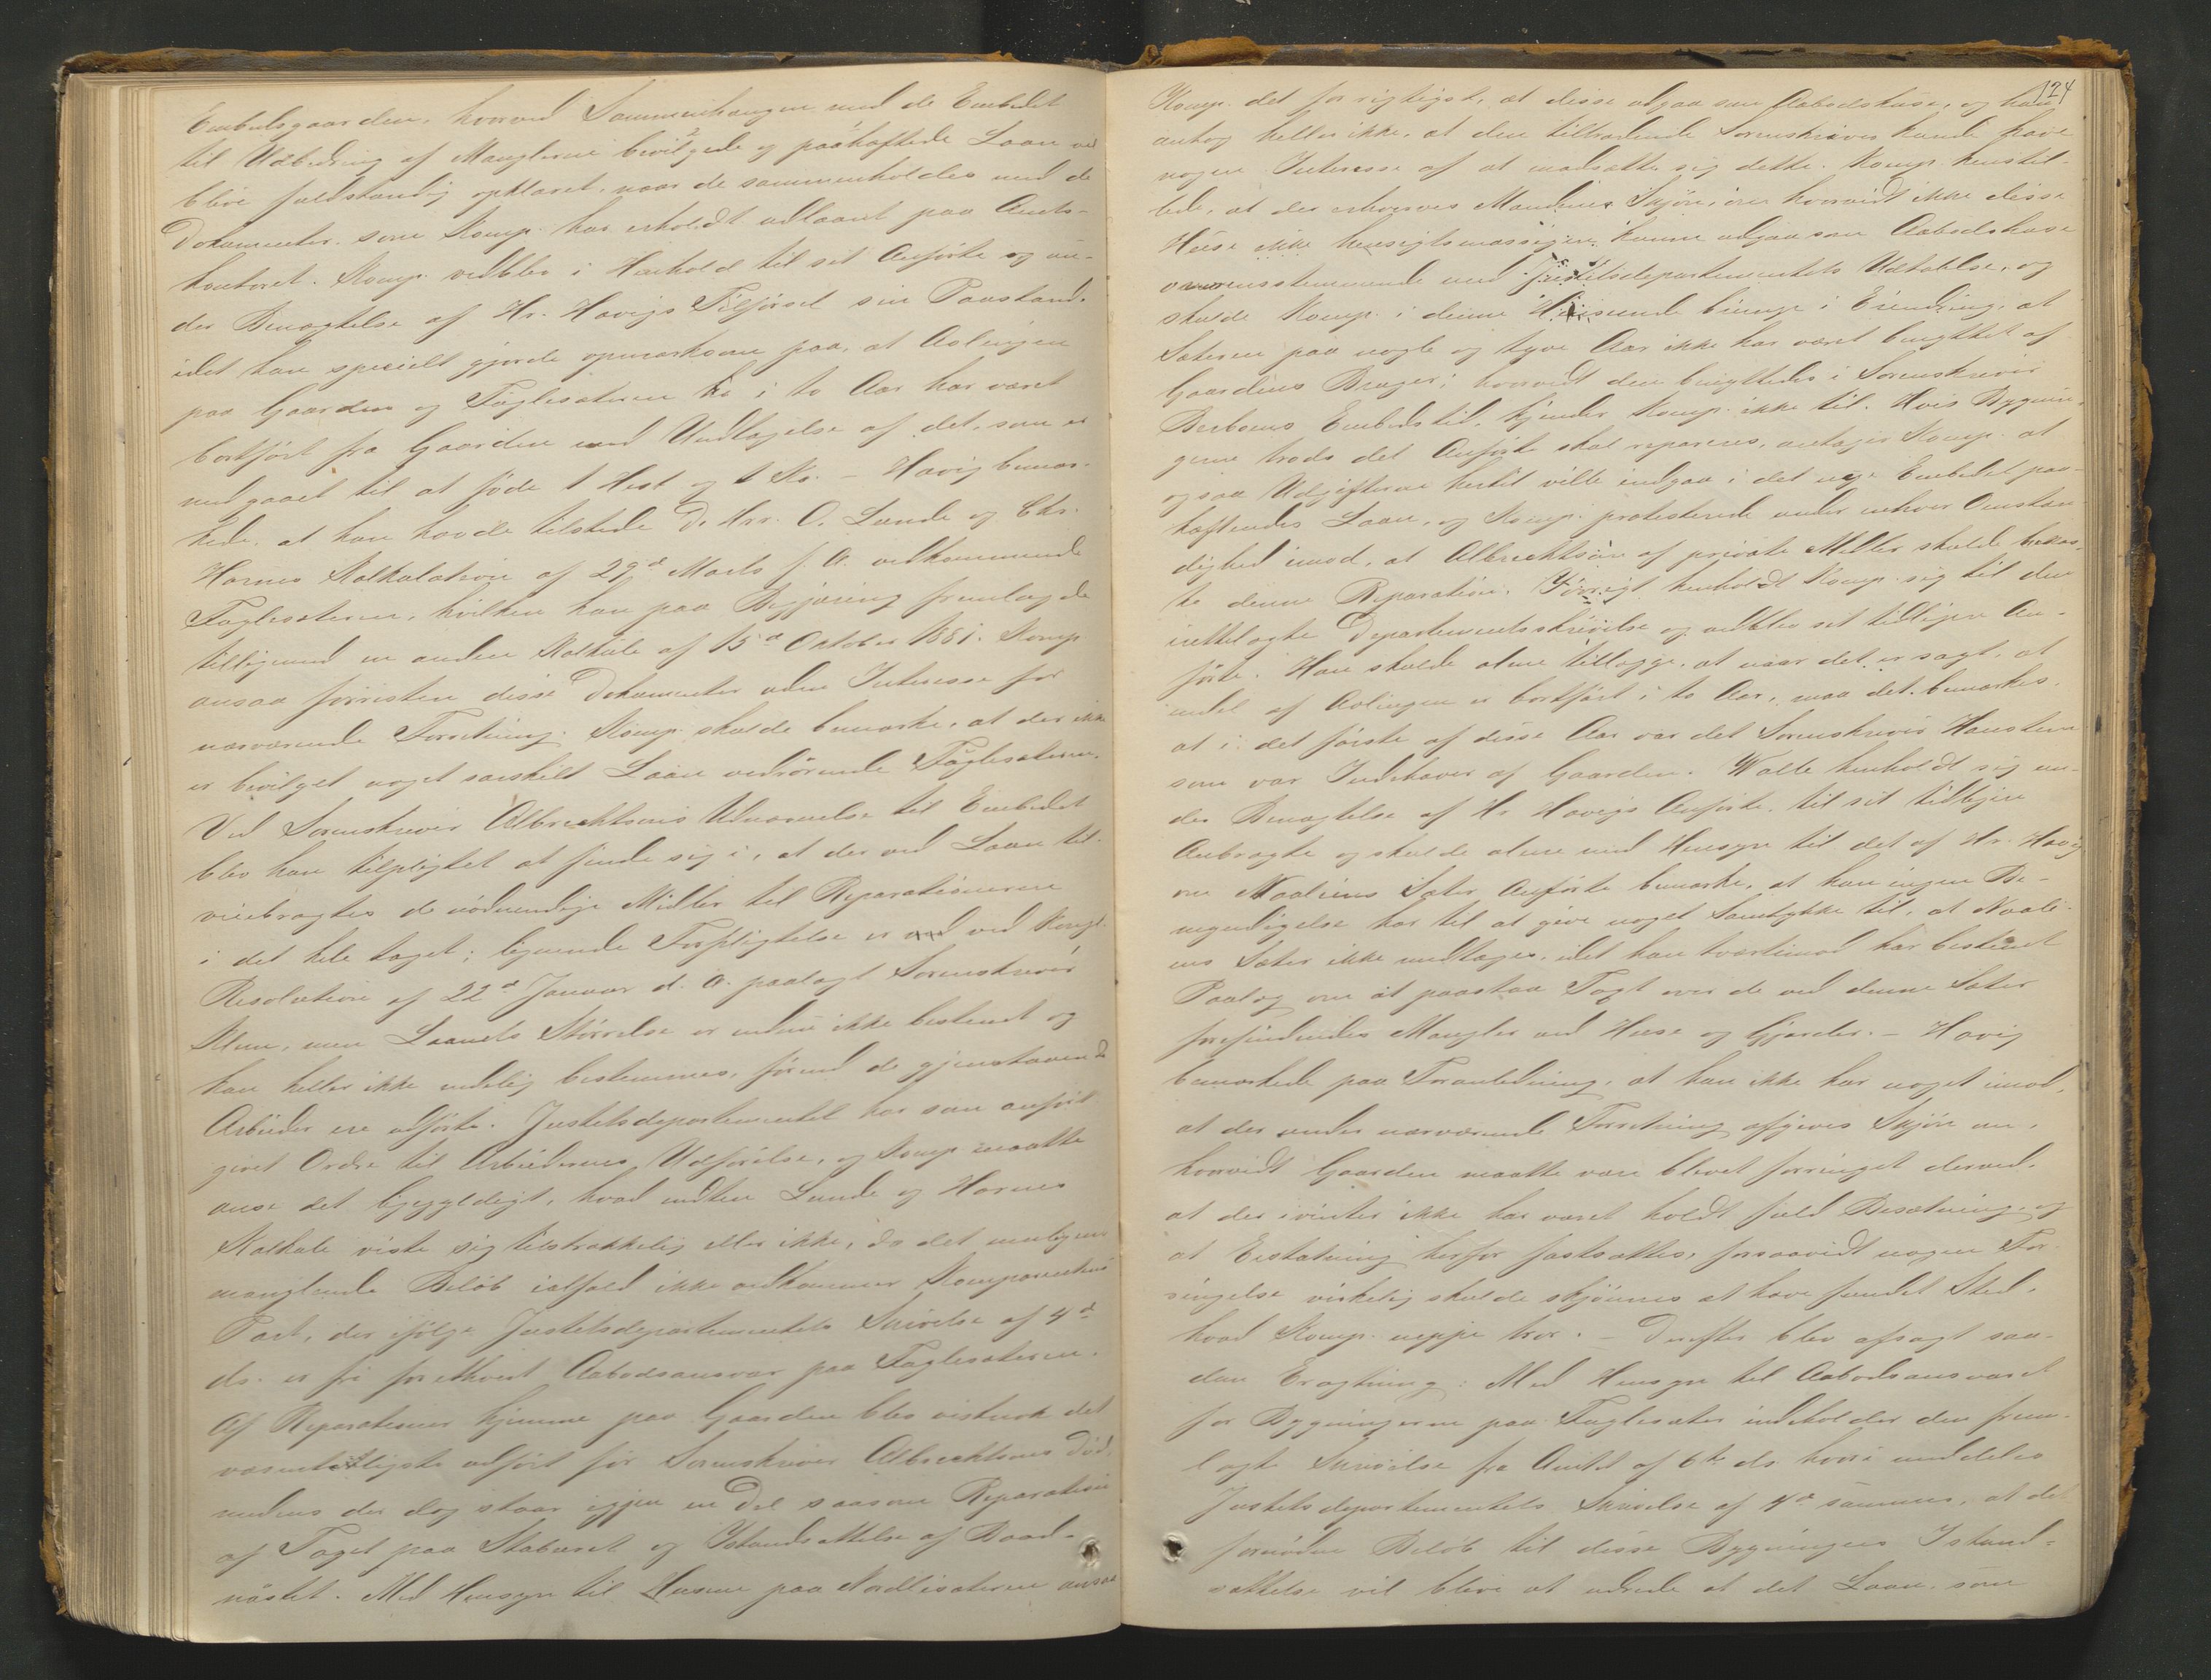 Embedsgaarden, hvorved Sammenhængen med de Embedet
til Udbedring af Manglerne bevilgede og paahæftede Laan vil
blive fuldstændig opklaret, naar de sammenholdes med de
Dokumenter som Komp. har erholdt udlaant paa Amts-
kontoret. Komp. vedblev i Henhold til sit Anførte og un-
der Benægtelse af Hr. Havigs Tilførsel sin Paastand,
idet han specielt gjorde opmærksom paa, at Avlingen
paa Gaarden og Fuglesæteren i to Aar har været
bortført fra Gaarden med Undtagelse af det, som er
medgaaet til at føde 1 Hest og 1 Ko. - Havig bemær-
kede, at han havde tilstede D. Hrr. O. Lunde og Chr.
Harnes Kalkulation af 29d Marts f. A. vedkommende
Fuglesæteren, hvilken han paa Begjæring fremlagde
tilligemed en anden Kalkule af 15d Oktober 1881. Komp
ansaa forresten disse Dokumenter uden Interesse for
nærværende Forretning. Komp. skulde bemærke, at der ikke
er bevilget noget særskilt Laan vedrørende Fuglesæteren.
Ved Sorenskriver Albrechtsens Udnævnelse til Embedet
blev han tilpligtet at finde sig i, at der ved Laan til-
veiebragtes de nødvendige Midler til Reparationerne
i det hele taget; lignende Forpligtelse er ved Kongl.
Resolution af 22d Januar d. A. paalagt Sorenskriver
Klem, men Laanets Størrelse er endnu ikke bestemt og
kan heller ikke endelig bestemmes, førend de gjenstaaende
Arbeider ere udførte. Justitsdepartementet har som anført
givet Ordre til Arbeidernes Udførelse, og Komp maatte
anse det ligegyldigt, hvad enten Lunde og Harnes
Kalkule viste sig tilstrækkelig eller ikke, da det muligens
manglende Beløb ialfald ikke vedkommer Komparentens
Part, der ifølge Justitsdepartementets Skrivelse af 4d
ds. er fri for ethvert Aabodsansvar paa Fuglesæteren.
Af Reparationer hjemme paa Gaarden blev vistnok det
væsentligste udført før Sorenskriver Albrechtsens Død,
medens der dog staar igjen en Del saasom Reparation
af Taget paa Staburet og Istandsættelse af Baad-
nøstet. Med Hensyn til Husene paa Nordlisæteren ansaa
124
Komp. det for rigtigst, at disse udgaa som Aabodshuse, og han
antog heller ikke, at den tiltrædende Sorenskriver kunde have
nogen Interesse af at modsætte sig dette. Komp. henstil-
lede, at der erhverves Mændenes Skjøn, om hvorvidt ikke disse
Huse ikke hensigtsmæssigen kunne udgaa som Aabodshuse
overensstemmende med Justitsdepartementets Udtalelse, og
skulde Komp. i denne Henseende bringe i Erindring, at
Sæteren paa nogle og tyve Aar ikke har været benyttet af
Gaardens Bruger; hvorvidt den benyttedes i Sorenskriver
Berboms Embedstid, kjender Komp. ikke til. Hvis Bygnin-
gerne trods det Anførte skal repareres, antager Komp. at
ogsaa Udgifterne hertil ville indgaa i det nye Embedet paa-
hæftendes Laan, og Komp. protesterede under enhver Omstæn-
dighed imod, at Albrechtsen af private Midler skulde bekos-
te denne Reparation. Forøvrigt henholdt Komp. sig til den
irettelagte Departementsskrivelse og vedblev sit tidligere An-
førte. Han skulde alene tillægge, at naar det er sagt, at
endel af Avlingen er bortført i to Aar, maa det bemærkes,
at i det første af disse Aar var det Sorenskriver Hansteen
som var Indehaver af Gaarden. Walle henholdt sig un-
der Benægtelse af Hr Havigs Anførte, til sit tidligere
Anbragte og skulde alene med Hensyn til det af Hr. Havig
om Naaliens Sæter Anførte bemærke, at han ingen Be-
myndigelse har til at give noget Samtykke til, at Naali-
ens Sæter ikke medtages, idet han tvertimod har bestemt
Paalæg om at paastaa Taxt over de ved denne Sæter
forefindendes Mangler ved Huse og Gjærder. - Havig
bemærkede paa Foranledning, at han ikke har noget imod,
at der under nærværende Forretning afgives Skjøn om,
hvorvidt Gaarden maatte være blevet forringet derved,
at der ivinter ikke har været holdt fuld Besætning, og
at Erstatning herfor fastsættes, forsaavidt nogen For-
ringelse virkelig skulde skjønnes at have fundet Sted,
hvad Komp. neppe tror. - Derefter blev afsagt saa-
dan Eragtning: Med Hensyn til Aabodsansvaret
for Bygningerne paa Fuglesæter indeholder den frem-
lagte Skrivelse fra Amtet af 6te ds. hvori meddeles
Justitsdepartementets Skrivelse af 4d sammes, at det
fornødne Beløb til disse Bygningers Istand-
sættelse vil blive at udrede af det Laan, som